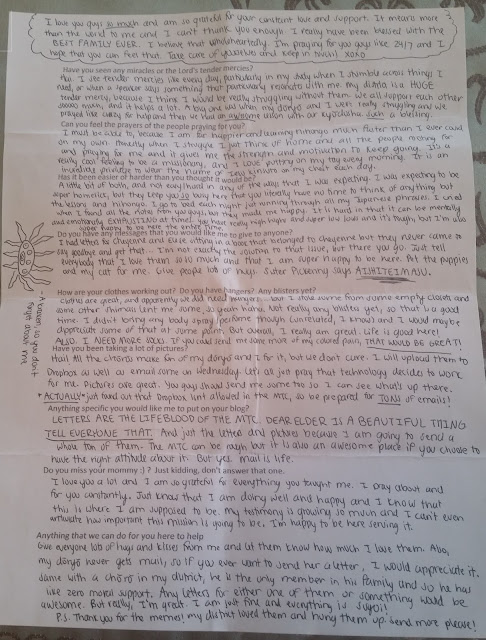 I love you guys so much and am so grateful for your constant love and support. It means more
than the world to me and I can't thank you enough. I really have been blessed with the
BEST FAMILY EVER. I believe that wholeheartedly. I'm praying for you guys like 24/7 and I
hope that you can feel that. Take care of yourselves and keep in touch! xoxo
Have you seen any miracles or the Lord's tender mercies?
I see tender mercies like every day, particularly in my study when I stumble across things I
need, or when a speaker says something that particularly resonates with me. My district is a HUGE
tender mercy, because I think I would be really struggling without them. We all support each other
so much, and it helps a lot. A day or so ago when my doryo and I were really struggling and we
prayed like crazy for help and then we had an awesome lesson with our kyudosha. Such a blessing.
Can you feel the prayers of the people praying for you?
I must be able to, because I am far happier and learning nihongo much faster than I ever could
on my own. Honestly when I struggle I just think of home and all the people rooting for
and praying for me and it gives me the strength and motivation to keep going. It's a
really cool feeling to be a missionary, and I love putting on my tag every morning. It is an
incredible privilege to wear the name of Iesu Kirisuto on my chest each day.
Has it been easier or harder than you thought it would be?
A little bit of both, and not easy/hard in any of the ways that I was expecting. I was expecting to be
super homesick, but they keep you so busy here that you literally have no time to think of anything but
the lessons and nihongo. I go to bed each night just running through all my Japanese phrases. I cried
when I found all the notes from you guys, but they made me happy. It is hard in that it can be mentally
and emotionally EXHAUSTING at times. You have really high highs and super low lows and it's tough, but I'm also
super happy to be here the entire time.
Do you have any messages that you would like me to give to anyone?
I had letters for Cheyenne and Elise sitting in a book that belonged to Cheyenne but they never came to
say goodbye and get that... I'm not exactly sure the solution to that issue, but there you go. Just tell
everybody that I love them so so much and that I am super happy to be here. Pet the puppies
and my cat for me. Give people lots of hugs. Sister Pickering says AISHITEIMASU.
A flower, so you don't
forget about me
How are your clothes working out? Do you have hangers? Any blisters yet?
Clothes are great, and apparently we did need hangers... but I stole some from some empty closets and
some other shimais lent me some, so yeah haha. Not really any blisters yet, so that is a good
time. I didn't totally any body spray/perfume though (unrelated, I know) and I would maybe
appreciate some of that at some point. But overall, I really am great. Life is good here!
ALSO. I NEED MORE SOCKS. If you could send me some more of my colored pairs, THAT WOULD BE GREAT!
Have you been taking a lot of pictures?
Hai! All the choros make fun of my doryo and I for it, but we don't care. I will upload them to
Dropbox as well as email some on Wednesday. Let's all just pray that technology decides to work
for me. Pictures are great. You guys should send me some too so I can see what's up there.
*ACTUALLY* just found out that Dropbox isn't allowed in the MTC, so be prepared for TONS of emails!
Anything specific you would like me to put on your blog?
LETTERS ARE THE LIFEBLOOD OF THE MTC. DEAR ELDER IS A BEAUTIFUL THING
TELL EVERYONE THAT. And just the letter and pictures because I am going to send a
whole ton of them. The MTC can be rough but it is also an awesome place if you choose to
have the right attitude about it. But yes, mail is life.
Do you miss your mommy :) ? Just kidding, don't answer that one.
I love you a lot and I am so grateful for everything you taught me. I pray about and
for you constantly. Just know that I am doing well and happy and I know that
this is where I am supposed to be. My testimony is growing so much and I can't even
articulate how important this mission is going to be. I'm happy to be here serving it.
Anything that we can do for you here to help
Give everyone lots of hugs and kisses from me and let them know how much I love them. Also,
my doryo never gets mail, so if you ever want to send her a letter, I would appreciate it.
Same with a choro in my district, he is the only member in his family and so he has
like zero moral support. Any letters for either one of them or something would be
awesome. But really, I'm great. I am just fine and everything is sugoi!
P.S. Thank you for the memes! My district loved them and hung them up. Send more please!